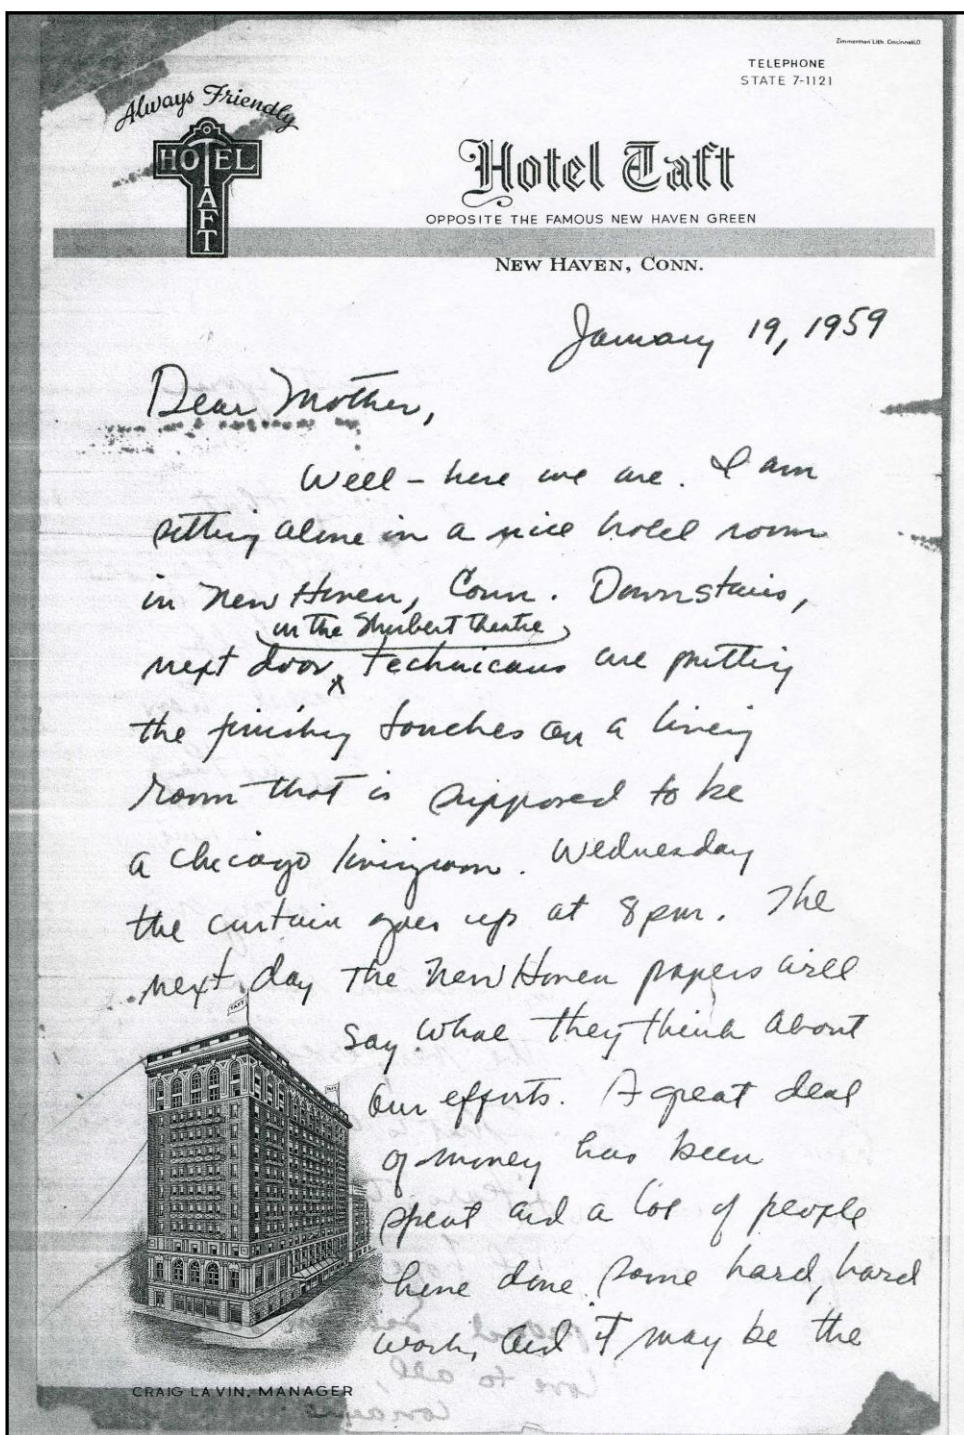 Zimmerman Lith. Cincinnati, O.
TELEPHONE
STATE 7-1121
Always Friendly
HOTEL
TAFT
Hotel Taft
OPPOSITE THE FAMOUS NEW HAVEN GREEN
NEW HAVEN, CONN.
January 19, 1959
Dear Mother,
Well – here we are. I am
sitting alone in a nice hotel room
in New Haven, Conn. Downstairs,
in the Shubert Theatre
next door, technicans are putting
the finishing touches on a living
room that is supposed to be
a Chicago livingroom. Wednesday
the curtain goes up at 8 pm. The
next day the New Haven papers will
TAFT
TAFT
say what they think about
our efforts. A great deal
of money has been
spent and a lot of people
have done some hard, hard
work, and it may be the
love to all,
CRAIG LAVIN, MANAGER